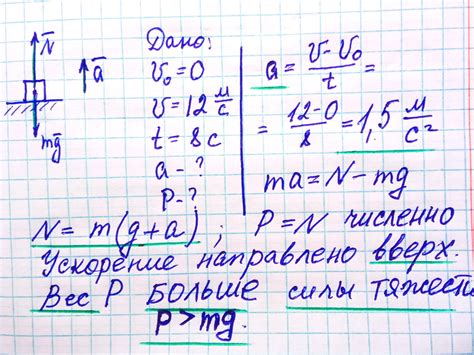 N̄
ā
mḡ
Дано:
v₀ = 0
v = 12 м/с
t = 8 с
a - ?
P - ?
a = (v - v₀)/t =
= (12 - 0)/8 = 1,5 м/с²
ma = N - mg
N = m(g + a) ; P = N численно
Ускорение направлено вверх.
Вес P БОЛЬШЕ силы тяжести
P > mg.